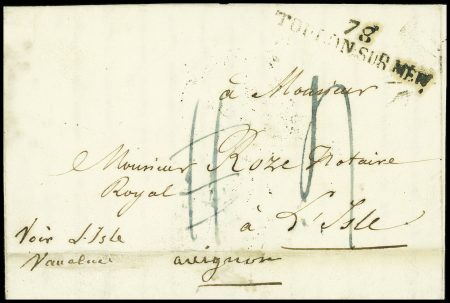 78
TOULON-SUR-MER
à Monsieur
Monsieur Roze Notaire
Royal
à L'Isle
Voir L'Isle
Vaucluse avignon